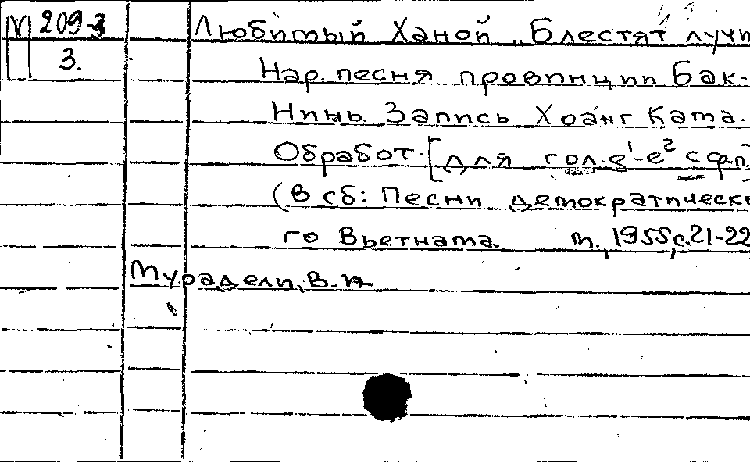 М 209-3 Любимый Ханой „Блестят лучи
3. Нар. песня провинции Бак-
Нинь. Запись Хоанг Ката.
Обработ. [для гол. g¹-e² с фп]
(В сб: Песни демократическо
го Вьетнама. М., 1955, с. 21-22
Мурадели, В. И.